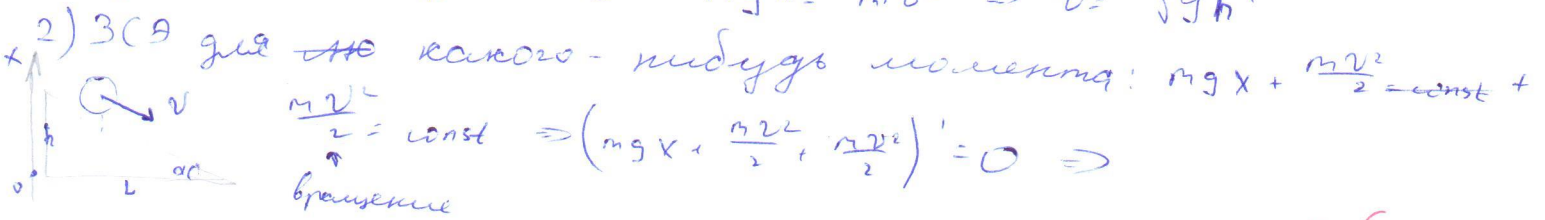 => v = √gh
2) ЗСЭ для какого-нибудь момента: mgx + mv²/2 = const +
mv²/2 = const => (mgx + mv²/2 + mv²/2)' = 0 =>
вращение
x
v
h
0
L
α